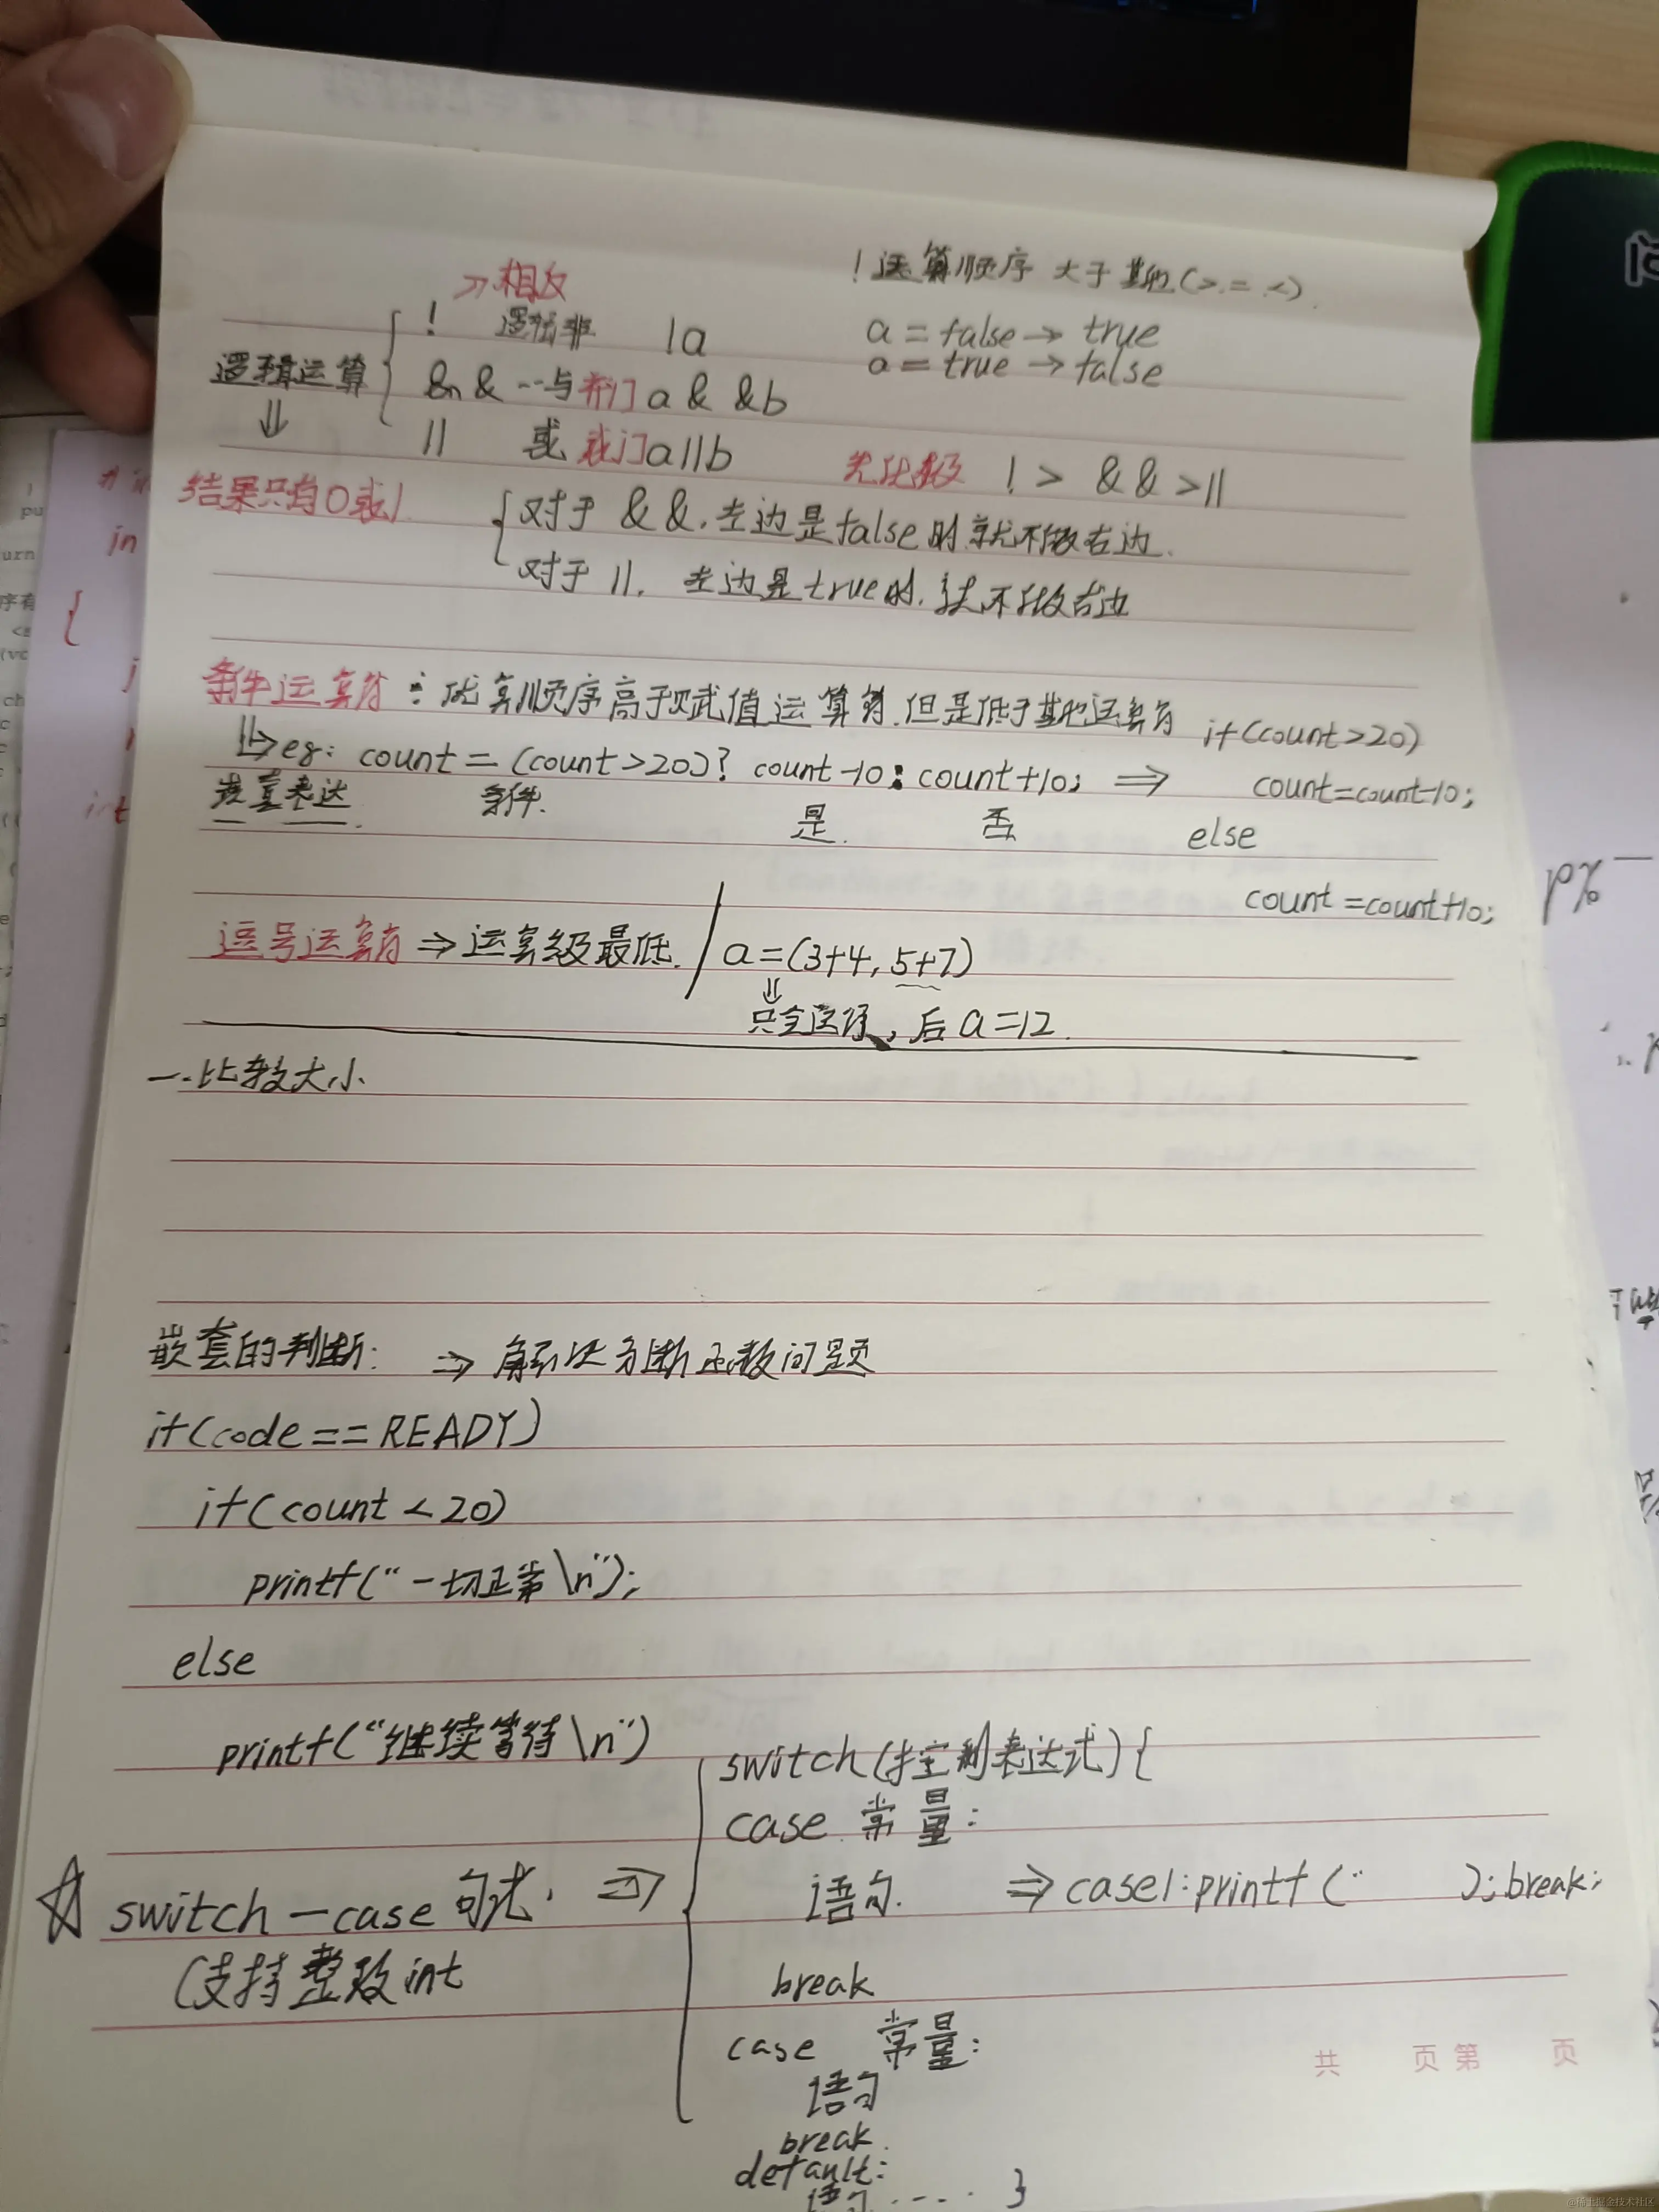 →相反
!运算顺序 大于其他(>.=.<).
! 逻辑非 !a
a = false → true
a = true → false
逻辑运算
&& --与 并门 a & &b
|| 或 或门 a||b
优先级 ! > && > ||
结果只有0或1
对于 &&.左边是false时就不做右边.
对于 ||. 左边是true时.就不做右边
条件运算符: 优先顺序高于赋值运算符.但是低于其他运算符
if(count>20)
eg: count = (count>20)? count-10:count+10; ⇒ count=count-10;
嵌套表达. 条件. 是. 否
else
count =count+10;
逗号运算符 ⇒ 运算级最低. a=(3+4, 5+7)
⇓
后 a=12.
一.比较大小
嵌套的判断: ⇒ 解决分断函数问题
if(code==READY)
if(count < 20)
printf("一切正常\n");
else
printf("继续等待\n")
switch(控制表达式){
case 常量:
☆ switch-case句式. ⇒
语句. ⇒ case1:printf(" );break;
(支持整数int
break
case 常量:
语句
break.
default:
语句.---- }
共 页 第 页
@稀土掘金技术社区